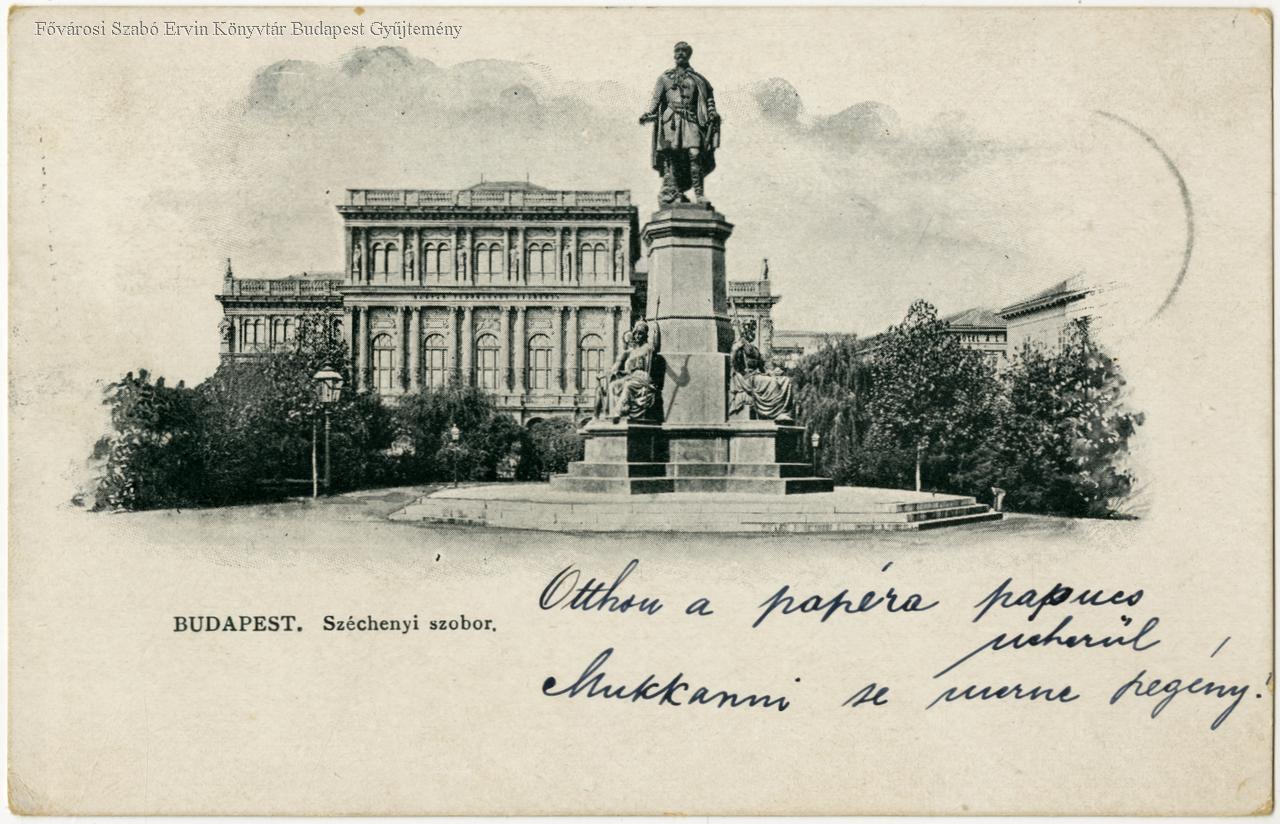 Fővárosi Szabó Ervin Könyvtár Budapest Gyűjtemény
BUDAPEST. Széchenyi szobor.
Otthon a papéra papucs
neherül,
Mukkanni se merne szegény!